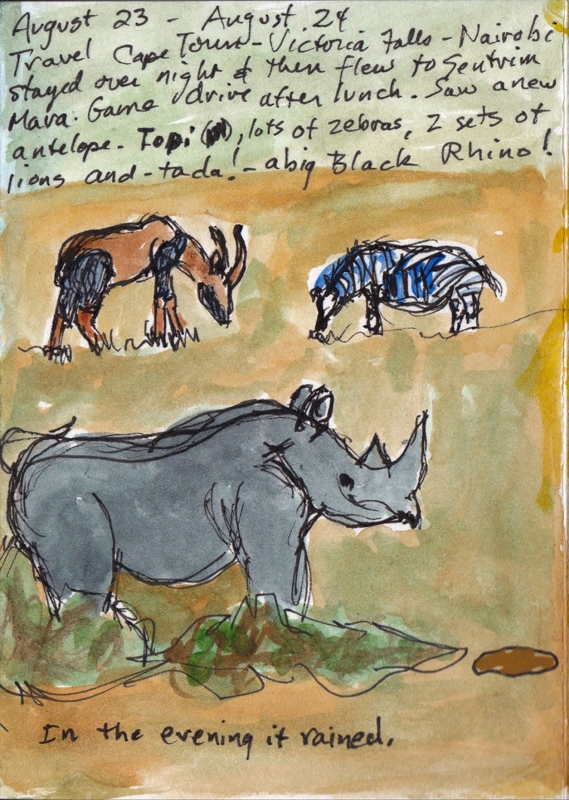 August 23 - August 24
Travel Cape Town - Victoria Falls - Nairobi
stayed over night & then flew to Sentrim
Mara. Game drive after lunch. Saw a new
antelope. Topi, lots of zebras, 2 sets of
lions and - tada! - a big Black Rhino!
In the evening it rained.